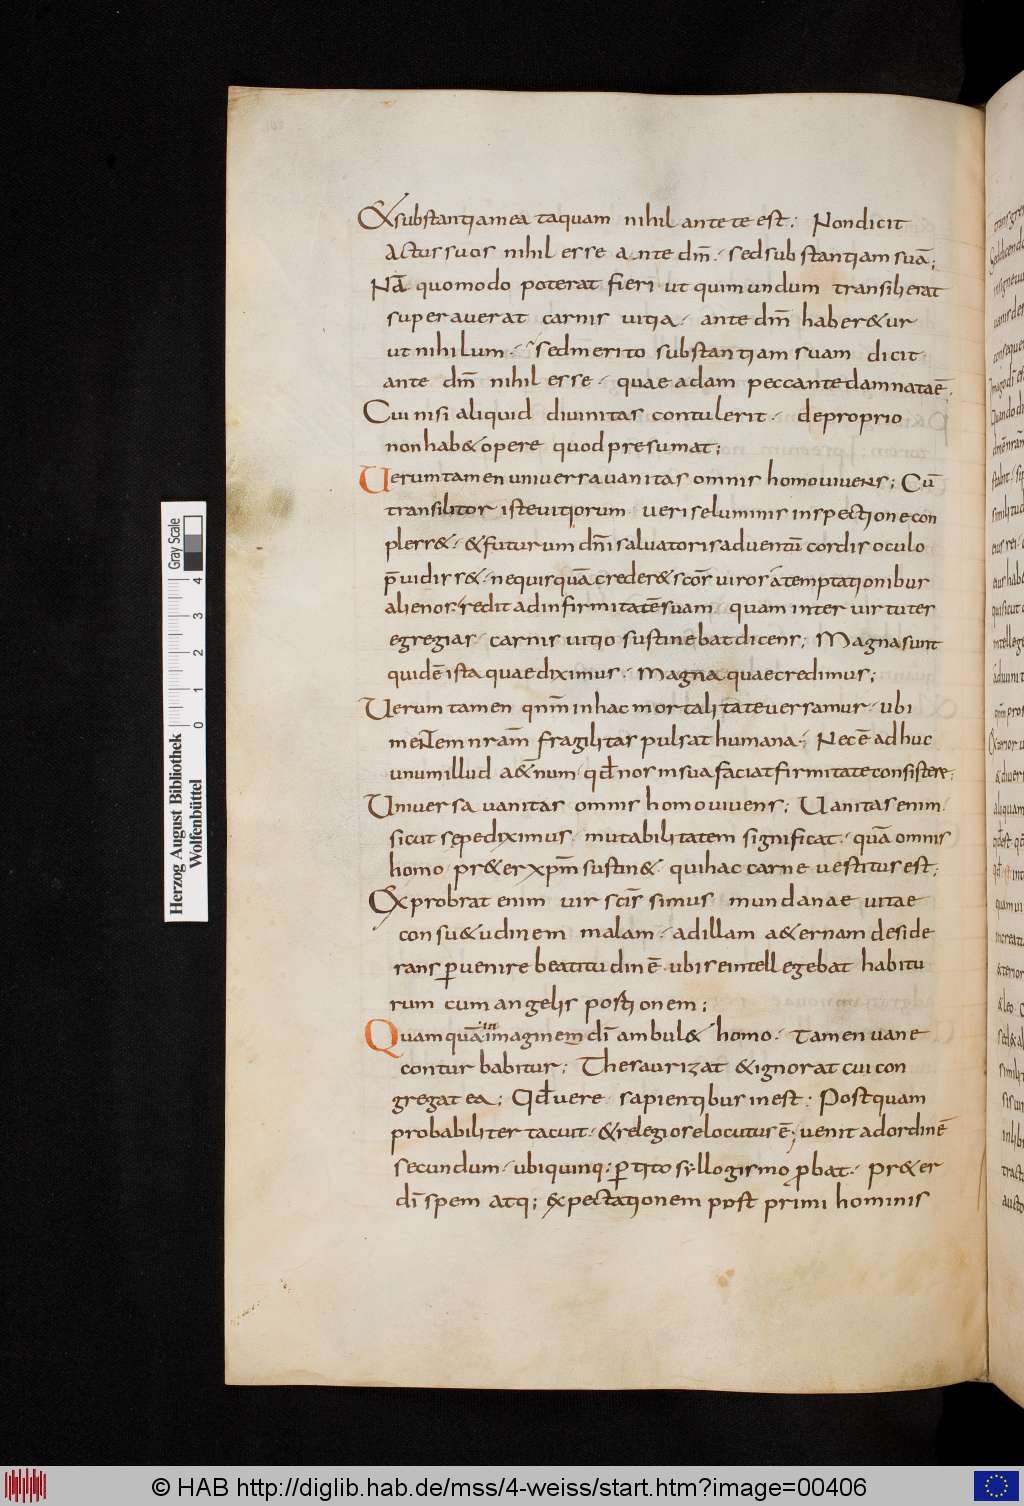 &substantiamea taquam nihil ante te est; Nondicit
actus suos nihil esse ante dm̄. sedsubstantiam suā;
Nā quomodo poterat fieri ut quimundum transilierat
superauerat carnis uitia. ante dm̄ haber&ur
ut nihilum. sed merito substantiam suam dicit
ante dm̄ nihil esse. quae adam peccante damnata ē.
Cui nisi aliquid diuinitas contulerit. de proprio
non hab& opere quod presumat;
Uerumtamen uniuersa uanitas omnis homo uiuens; Cū
transilitor iste uitiorum ueri se luminis inspectione con
pless&. & futurum dn̄i saluatoris aduentū cordis oculo
p̄uidiss&. nequisquā creder& sc̄os uiros a temptationibus
alienos. redit ad infirmitatē suam quam inter uirtutes
egregias. carnis uitio sustinebat dicens; Magna sunt
quidē ista quae diximus. Magna quae credimus;
Uerum tamen qnm̄ in hac mortalitate uersamur. ubi
mentem nram̄ fragilitas pulsat humana. Nec ē adhuc
unum illud a&̄num. qd̄ nos in sua faciat firmitate consistere;
Uniuersa uanitas omnis homo uiuens; Uanitas enim.
sicut sepe diximus. mutabilitatem significat. quā omnis
homo pr&er xpm̄ sustin& qui hac carne uestitus est;
Exprobrat enim uir sc̄is simus mundanae uitae
consu&udinem malam. ad illam a&ernam deside
rans p̄uenire beatitudinē. ubi se intellegebat habitu
rum cum angelis postionem;
Quamquā in imaginem dī ambul& homo. Tamen uane
conturbabitur; Thesaurizat & ignorat cui con
gregat ea; Qd̄ uere sapientibus inest; Postquam
probabiliter tacuit. & relegiose locutus ē; uenit ad ordinē
secundum. ubi quinq; ptito syllogismo pbat. pr&er
dī spem atq; expectationem post primi hominis
Herzog August Bibliothek
Wolfenbüttel
Gray Scale
0 1 2 3 4
© HAB http://diglib.hab.de/mss/4-weiss/start.htm?image=00406